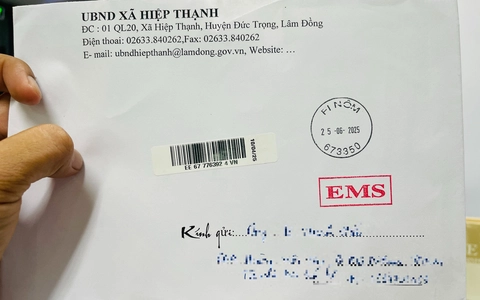 UBND XÃ HIỆP THẠNH
ĐC : 01 QL20, Xã Hiệp Thạnh, Huyện Đức Trọng, Lâm Đồng
Điện thoai: 02633.840262,Fax: 02633.840262
E- mail: ubndhiepthanh@lamdong.gov.vn, Website: …
FI NÔM
25-06-2025
673350
10/04/25
EE 67 776392 4 VN
EMS
Kính gửi: